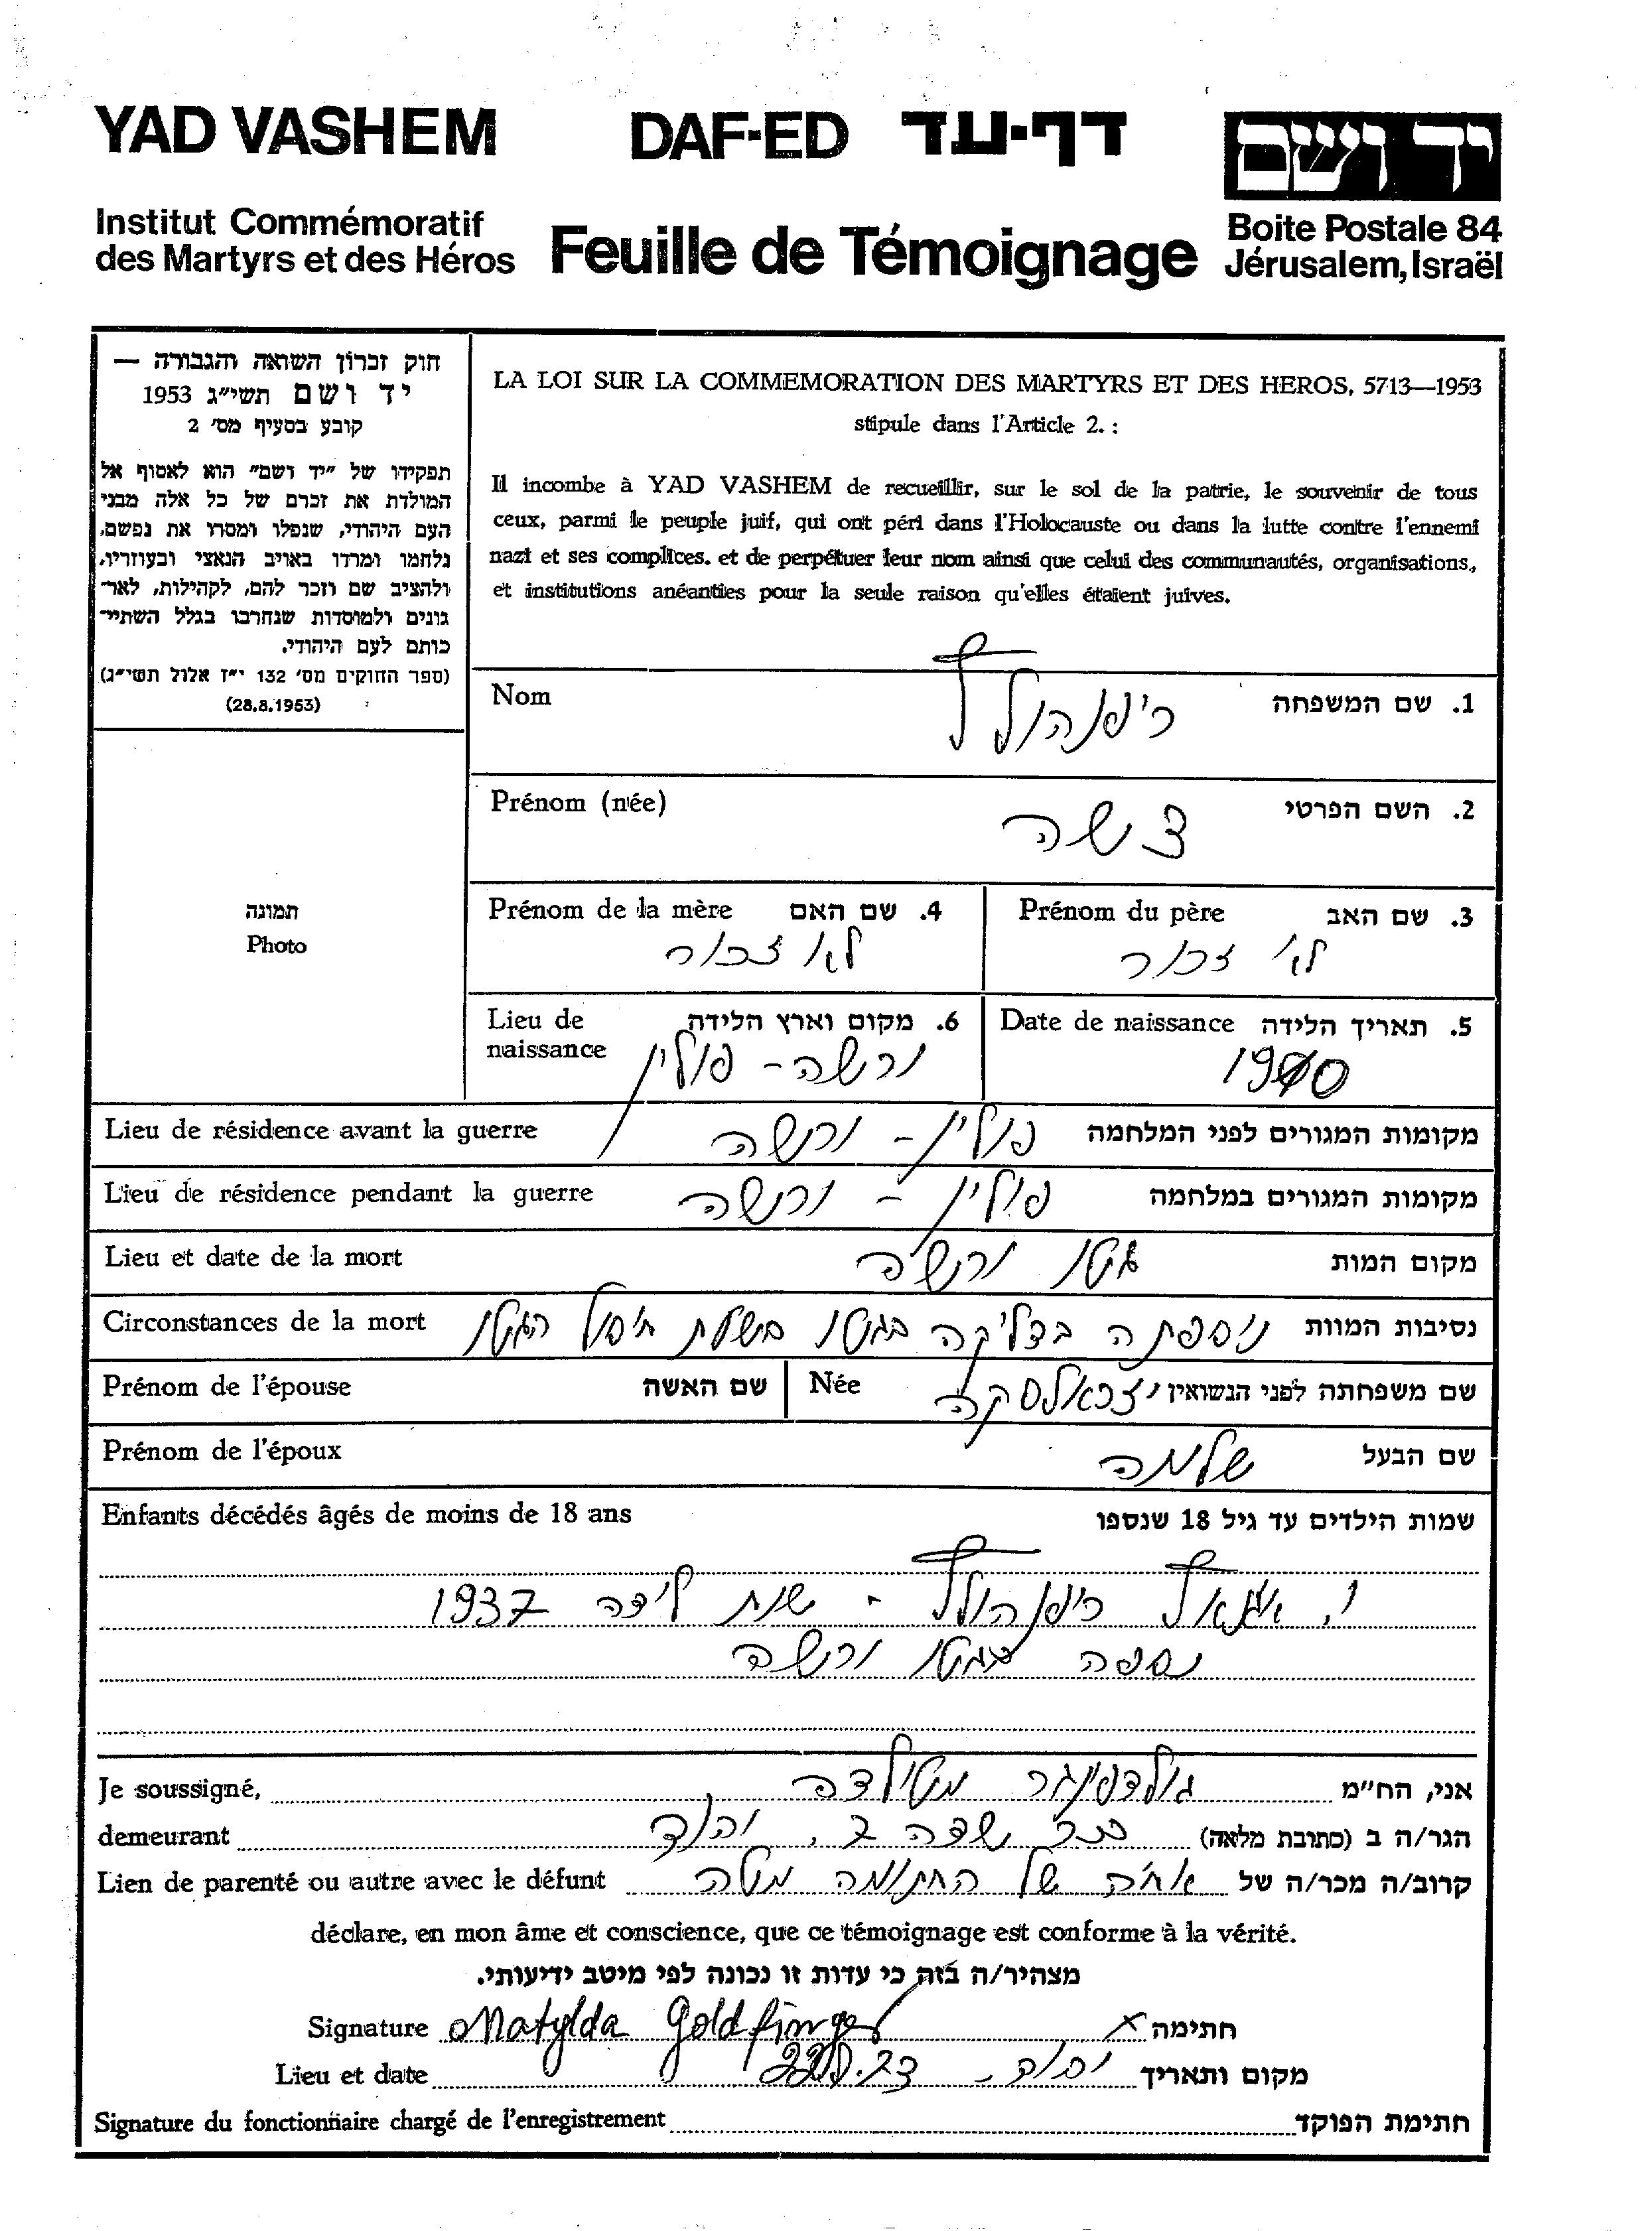 YAD VASHEM DAF-ED דף-עד יד ושם
Institut Commémoratif
des Martyrs et des Héros
Feuille de Témoignage
Boite Postale 84
Jérusalem, Israël
חוק זכרון השואה והגבורה —
יד ושם תשי״ג 1953
קובע בסעיף מס׳ 2
תפקידו של ״יד ושם״ הוא לאסוף אל
המולדת את זכרם של כל אלה מבני
העם היהודי, שנפלו ומסרו את נפשם,
נלחמו ומרדו באויב הנאצי ובעוזריו,
ולהציב שם וזכר להם, לקהילות, לאר-
גונים ולמוסדות שנחרבו בגלל השתיי-
כותם לעם היהודי.
(ספר החוקים מס׳ 132 י״ז אלול תשי״ג)
(28.8.1953)
תמונה
Photo
LA LOI SUR LA COMMEMORATION DES MARTYRS ET DES HEROS, 5713—1953
stipule dans l'Article 2. :
Il incombe à YAD VASHEM de recueillir, sur le sol de la patrie, le souvenir de tous
ceux, parmi le peuple juif, qui ont péri dans l'Holocauste ou dans la lutte contre l'ennemi
nazi et ses complices. et de perpétuer leur nom ainsi que celui des communautés, organisations,
et institutions anéanties pour la seule raison qu'elles étaient juives.
Nom 1. שם המשפחה
Prénom (née) 2. השם הפרטי צשה
Prénom de la mère 4. שם האם לא זכור
Prénom du père 3. שם האב לא זכור
Lieu de naissance 6. מקום וארץ הלידה ורשה - פולין
Date de naissance 5. תאריך הלידה 1910
Lieu de résidence avant la guerre מקומות המגורים לפני המלחמה פולין - ורשה
Lieu de résidence pendant la guerre מקומות המגורים במלחמה פולין - ורשה
Lieu et date de la mort מקום המות גטו ורשה
Circonstances de la mort נסיבות המוות ניספתה בדליקה בגטו בשעת חיסול הגטו
Prénom de l'épouse שם האשה Née שם משפחתה לפני הנשואין
Prénom de l'époux שם הבעל שלמה
Enfants décédés âgés de moins de 18 ans שמות הילדים עד גיל 18 שנספו
- שנת לידה 1937
נספה בגטו ורשה
Je soussigné, אני, הח״מ גולדפינגר מטילדה
demeurant הגר/ה ב (כתובת מלאה) שדה
Lien de parenté ou autre avec le défunt קרוב/ה מכר/ה של של החתומה מטה
déclare, en mon âme et conscience, que ce témoignage est conforme à la vérité.
מצהיר/ה בזה כי עדות זו נכונה לפי מיטב ידיעותי.
Signature Matylda Goldfinger חתימה x
Lieu et date מקום ותאריך
Signature du fonctionnaire chargé de l'enregistrement חתימת הפוקד